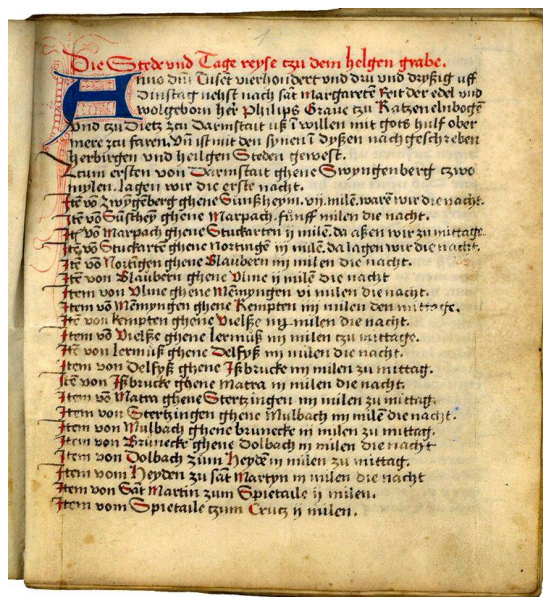 1
Die Stede vnd Tage reyse tzu dem helgen grabe.
Anno dm̄ Tusēt vierhondert vnd drú vnd dryßig uff
Dinstag nehst nach sāt Margaretē Feit der edel vnd
wolgeborn her Philips Grave tzu Katzenelnbogē
vnd tzu Dietz zcu Darmstait uß ī willen mit gots hulf ober
mere zu faren. Vn̄ ist mit den synen ī dyßen nach geschreben
herbirgen vnd heilgen Steden gewest.
Zcum ersten von Darmstait ghene Swyngenberg czwo
mylen. lagen wir die erste nacht.
Itē vō Zwygēberg ghene Sūnßheym. vij. milē. warē wir die nacht.
Itē vō Sūßhey ghene Marpach. fúnff milen die nacht.
Itē vō Marpach ghene Stuckarten ij milē. da aßen wir zu mittage.
Itē vō Stuckartē ghene Nortingē iij milē. da lagen wir die nacht.
Itē vō Nortigen ghene Blaubern iiij milen die nacht.
Itē von Blaubern ghene Vlme ij milē die nacht
Item von Vlme ghene Mēmyngen vi milen die nacht.
Item vō Mēmyngen ghene Kempten iiij milen den mittage.
Itē von kempten ghene Vielße milen die nacht.
Item vō Vielße ghene lermúß iiij milen tzu mittage.
Itē von lermúß ghene Delfyß iij milen die nacht.
Item von Delfyß ghene Ißbrucke iiij milen zu mittag.
Itē von Ißbrucke ghene Matra iij milen die nacht.
Item vō Matra ghene Stertzingen iiij milen zu mittag.
Item von Stertzingen ghene Mulbach iiij milē die nacht.
Item von Mulbach ghene brunecke iij milen zu mittag.
Item von Brunecke ghene Dolbach iij milen die nacht
Item von Dolbach zúm Heydē iij milen zu mittag.
Item vom Heyden zu sāt Martyn iij milen die nacht
Item von Sāt Martin zum Spietaile ij milen.
Item vom Spietaile tzum Crucz ij milen.